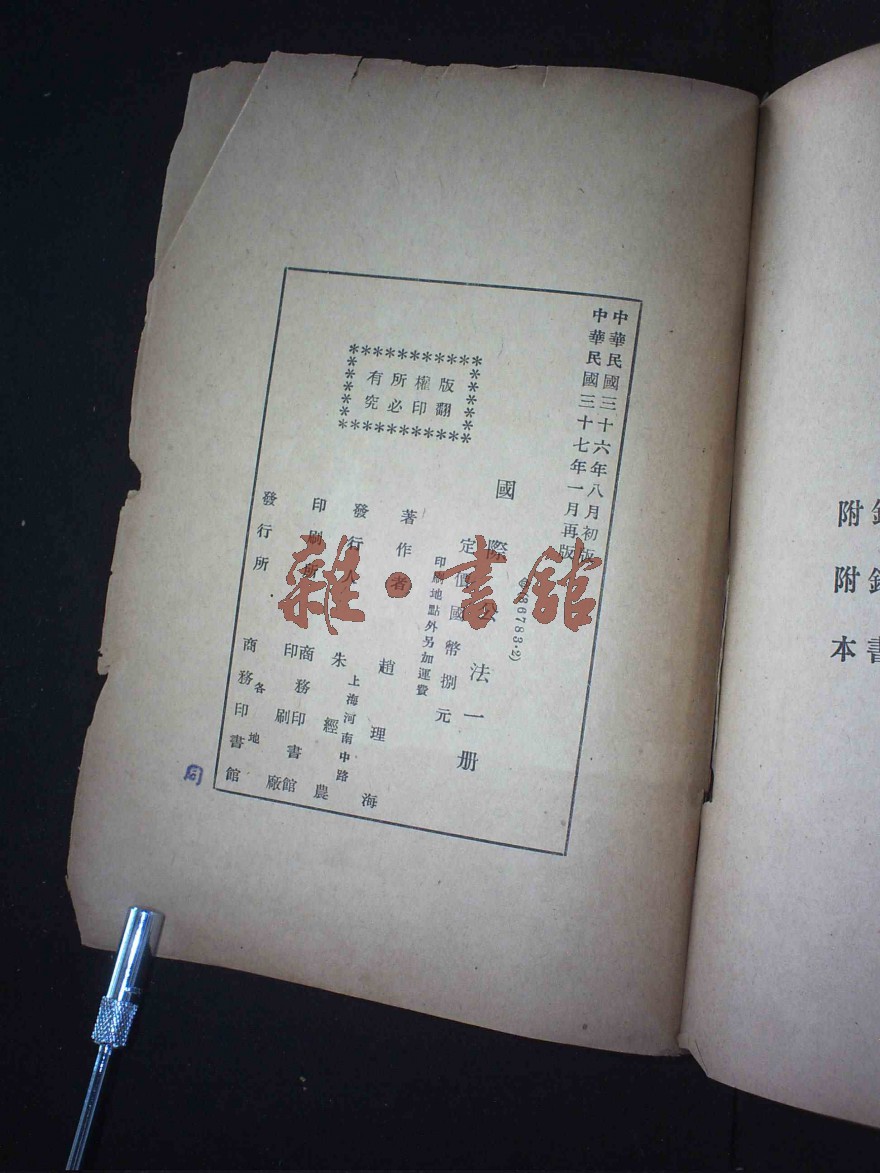 中華民國三十六年八月初版
中華民國三十七年一月再版
(86783·2)
國際公法一册
定價國幣捌元
印刷地點外另加運費
版權所有
翻印必究
著作者 趙理海
發行人 朱經農
上海河南中路
印刷所 商務印書館
印刷廠
發行所 商務印書館
各地
雜·書館
附
附
本書